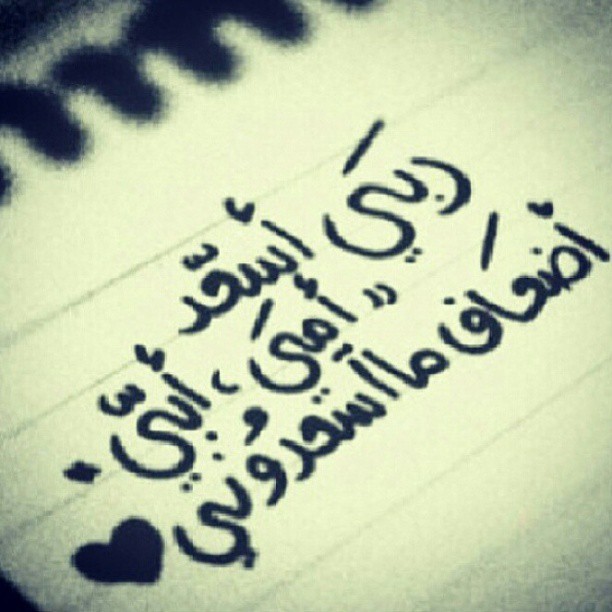 ربيَ أسْعدّ
" أميَ ، أبيّ .
أضعَاف ما اسَعدُوني ♥